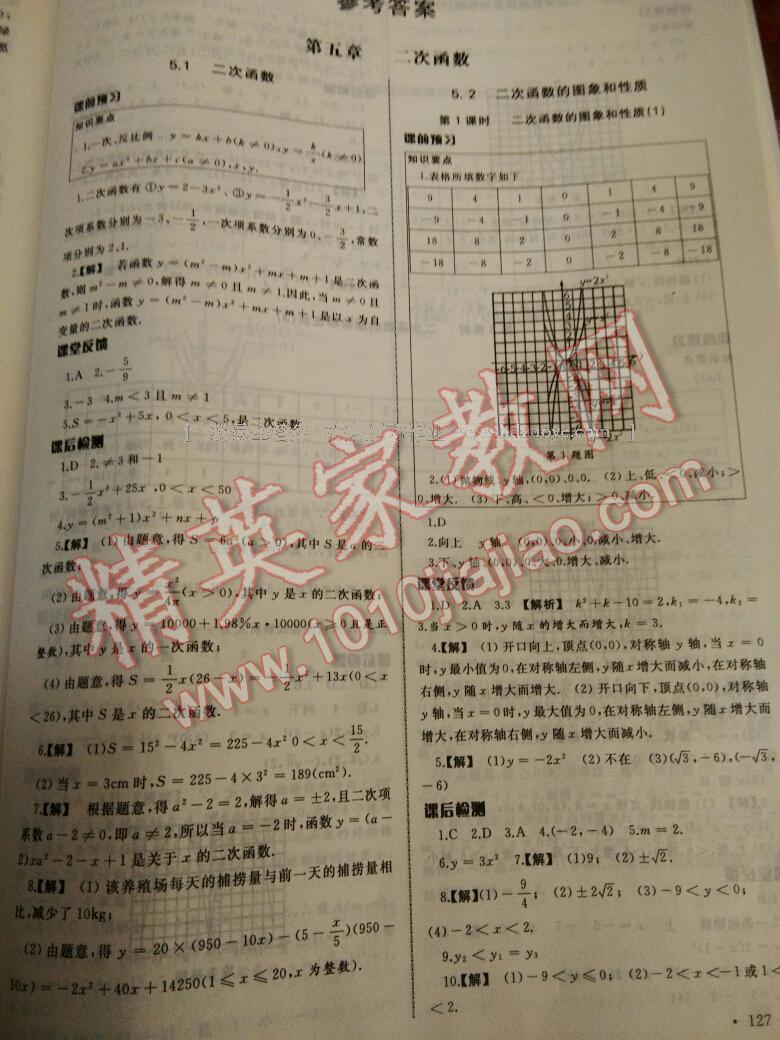 参考答案
第五章 二次函数
5.1 二次函数
课前预习
知识要点
1.一次、反比例 y=kx+b(k≠0),y=k/x(k≠0)
2.y=ax²+bx+c(a≠0),x,y.
1.二次函数有①y=2-3x²、③y=-1/2x²-3/2x+1,二
次项系数分别为-3、-1/2,一次项系数分别为0、-3/2,常数
项分别为2、1.
2.【解】 若函数y=(m²-m)x²+mx+m+1是二次函
数,则m²-m≠0,解得m≠0且m≠1.因此,当m≠0且
m≠1时,函数y=(m²-m)x²+mx+m+1是以x为自
变量的二次函数.
课堂反馈
1.A 2.-5/9
3.-3 4.m<3且m≠1
5.S=-x²+5x,0<x<5,是二次函数
课后检测
1.D 2.≠3和-1
3.-1/2x²+25x,0<x<50
4.y=(m²+1)x²+nx+p
5.【解】 (1)由题意,得S=6a²(a>0),其中S是a的二
次函数;
(2)由题意,得y=x²/4π(x>0),其中y是x的二次函数;
(3)由题意,得y=10000+1.98%x·10000(x≥0且是正
整数),其中y是x的一次函数;
(4)由题意,得S=1/2x(26-x)=-1/2x²+13x(0<x
<26),其中S是x的二次函数.
6.【解】 (1)S=15²-4x²=225-4x² 0<x<15/2.
(2)当x=3cm时,S=225-4×3²=189(cm²).
7.【解】 根据题意,得a²-2=2,解得a=±2,且二次项
系数a-2≠0,即a≠2,所以当a=-2时,函数y=(a-
2)xa²-2-x+1是关于x的二次函数.
8.【解】 (1)该养殖场每天的捕捞量与前一天的捕捞量相
比,减少了10kg;
(2)由题意,得y=20×(950-10x)-(5-x/5)(950-
10x)=-2x²+40x+14250(1≤x≤20,x为整数).
5.2 二次函数的图象和性质
第1课时 二次函数的图象和性质(1)
课前预习
知识要点
1.表格所填数字如下
9 4 1 0 1 4 9
-9 -4 -1 0 -1 -4 -9
18 8 2 0 2 8 18
-18 -8 -2 0 -2 -8 -18
y=2x²
第1题图
2.(1)抛物线、y轴,(0,0)、0、0. (2)上、低、<0、减小;>
0、增大. (3)下、高、<0、增大;>0、减小.
1.D
2.向上 y轴 (0,0)、0、小、0、减小、增大.
3.下、y轴、(0,0)、0、大、0、增大、减小.
课堂反馈
1.D 2.A 3.3 【解析】 k²+k-10=2,k₁=-4,k₂=
3.当x>0时,y随x的增大而增大,k=3.
4.【解】 (1)开口向上,顶点(0,0),对称轴y轴,当x=0
时,y最小值为0,在对称轴左侧,y随x增大而减小,在对称轴
右侧,y随x增大而增大. (2)开口向下,顶点(0,0),对称轴
y轴,当x=0时,y最大值为0,在对称轴左侧,y随x增大而
增大,在对称轴右侧,y随x增大而减小.
5.【解】 (1)y=-2x² (2)不在 (3)(√3,-6),(-√3,
-6)
课后检测
1.C 2.D 3.A 4.(-2,-4) 5.m=2.
6.y=3x² 7.【解】 (1)9; (2)±√2.
8.【解】(1)-9/4; (2)±2√2; (3)-9<y<0;
(4)-2<x<2.
9.y₂<y₁=y₃
10.【解】 (1)-9<y≤0; (2)-2<x<-1或1<x
<2.
·127
精英家教网
www.1010jiajiao.com